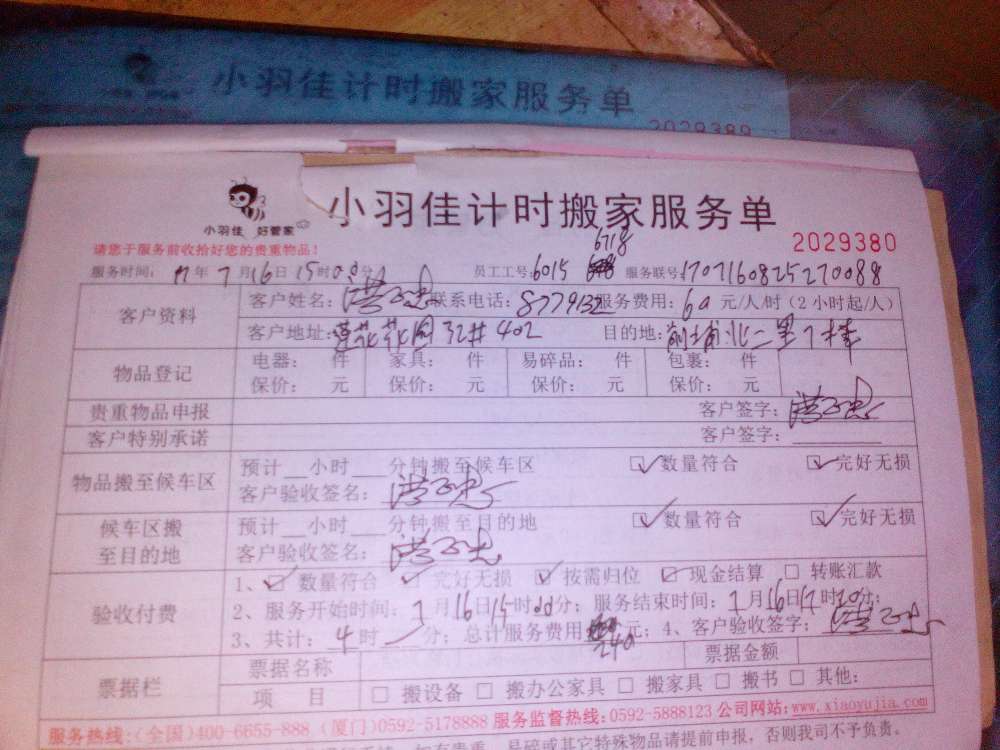 小羽佳计时搬家服务单
2029389
小羽佳 好管家
小羽佳计时搬家服务单
2029380
请您于服务前收拾好您的贵重物品！
6718
服务时间： 17年 7月16日 15时00分 员工工号：6015 服务联号：1707160825270088
客户资料
客户姓名： 联系电话： 服务费用：60 元/人/时（2小时起/人）
客户地址：莲花花园 402 目的地：前埔北二里7栋
物品登记
电器： 件 家具： 件 易碎品： 件 包裹： 件
保价： 元 保价： 元 保价： 元 保价： 元
贵重物品申报 客户签字：
客户特别承诺 客户签字：
物品搬至候车区
预计__小时___分钟搬至候车区 ☑数量符合 ☑完好无损
客户验收签名：
候车区搬至目的地
预计__小时___分钟搬至目的地 ☑数量符合 ☑完好无损
客户验收签名：
验收付费
1、☑数量符合 ☑完好无损 ☑按需归位 ☑现金结算 □转账汇款
2、服务开始时间：7月16日15时00分；服务结束时间：7月16日17时00分；
3、共计：4时 分；总计服务费用 240 元；4、客户验收签字：
票据栏
票据名称 票据金额
项 目 □搬设备 □搬办公家具 □搬家具 □搬书 □其他：
服务热线：（全国）400-6655-888 （厦门）0592-5178888 服务监督热线：0592-5888123 公司网站：www.xiaoyujia.com
如有贵重、易碎或其它特殊物品请提前申报，否则我司不予负责。